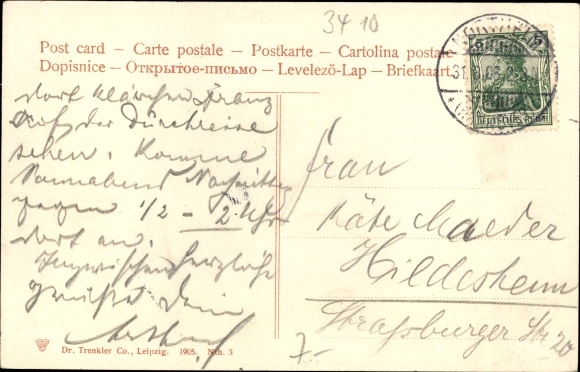 34 10
Post card – Carte postale – Postkarte – Cartolina postale
Dopisnice – Открытое-письмо – Levelező-Lap – Briefkaart
31. 05
DEUTSCHES REICH
dort Klärchen Franz
auf der Durchreise
sehen. Komme
Sonnabend Nachmittag
gegen 1/2 – 2 Uhr
dort an.
Inzwischen herzlichst
grüßt Dein
Frau
Käte Maeder
Hildesheim
Straßburger Str 20
7.-
Dr. Trenkler Co., Leipzig. 1905. Nth. 3